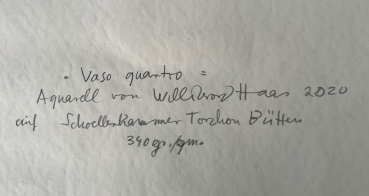 - Vaso quattro =
Aquarell von Haas 2020
auf Schoellershammer Torchon Bütten
340gr./qm.